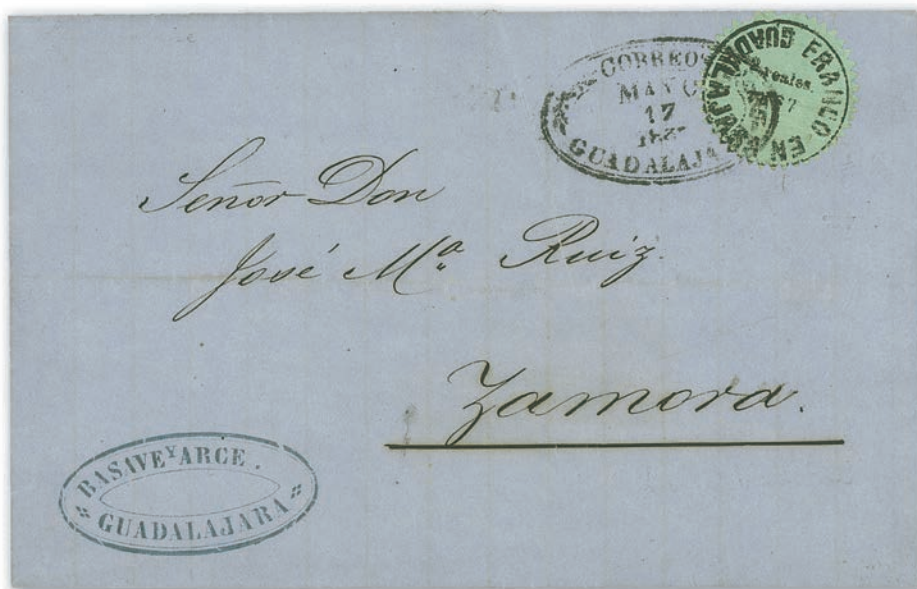 CORREOS
MAYO
17
GUADALAJA
FRANCO EN GUADALAJARA
reales.
Señor Don
José Mª Ruiz.
Zamora.
BASAVE Y ARCE.
GUADALAJARA